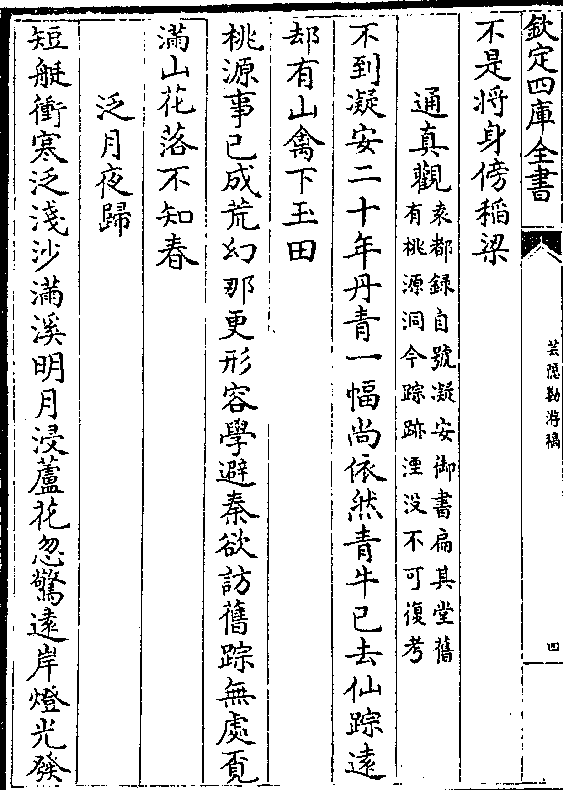 欽定四庫全書
芸隱勌游稿
四
不是將身傍稻梁
通真觀袁都録自號凝安御書扁其堂舊
有桃源洞今踪跡湮没不可復考
不到凝安二十年丹青一幅尚依然青牛已去仙踪遠
却有山禽下玉田
桃源事已成荒幻那更形容學避秦欲訪舊踪無處覔
滿山花落不知春
泛月夜歸
短艇衝寒泛淺沙滿溪明月浸蘆花忽驚遠岸燈光發